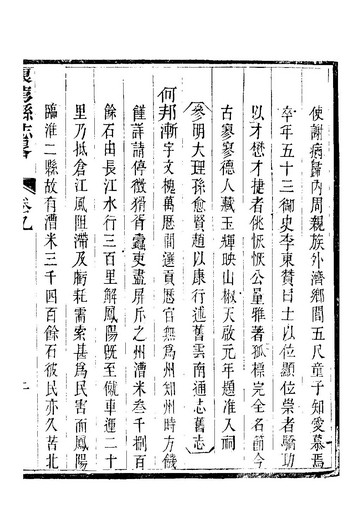 使謝病歸內周親族外濟鄉閭五尺童子知愛慕焉
卒年五十三御史李東贊曰士以位顯位崇者驕功
以才懋才捷者佻恢恢公量雅著孤標完全名節今
古寥寥德人載玉輝映山椒天啟元年題准入祠
參明大理孫愈賢趙以康行述舊雲南通志舊志
何邦漸字文槐萬厯間選貢厯官無為州知州時方饑
饉詳請停徵猾胥蠹吏盡屏斥之州漕米叁千捌百
餘石由長江水行三百里解鳳陽既至僦車運二十
里乃抵倉江風阻滯及虧耗需索甚為民害而鳳陽
臨淮二縣故有漕米三千四百餘石彼民亦久苦北
縣志
卷九